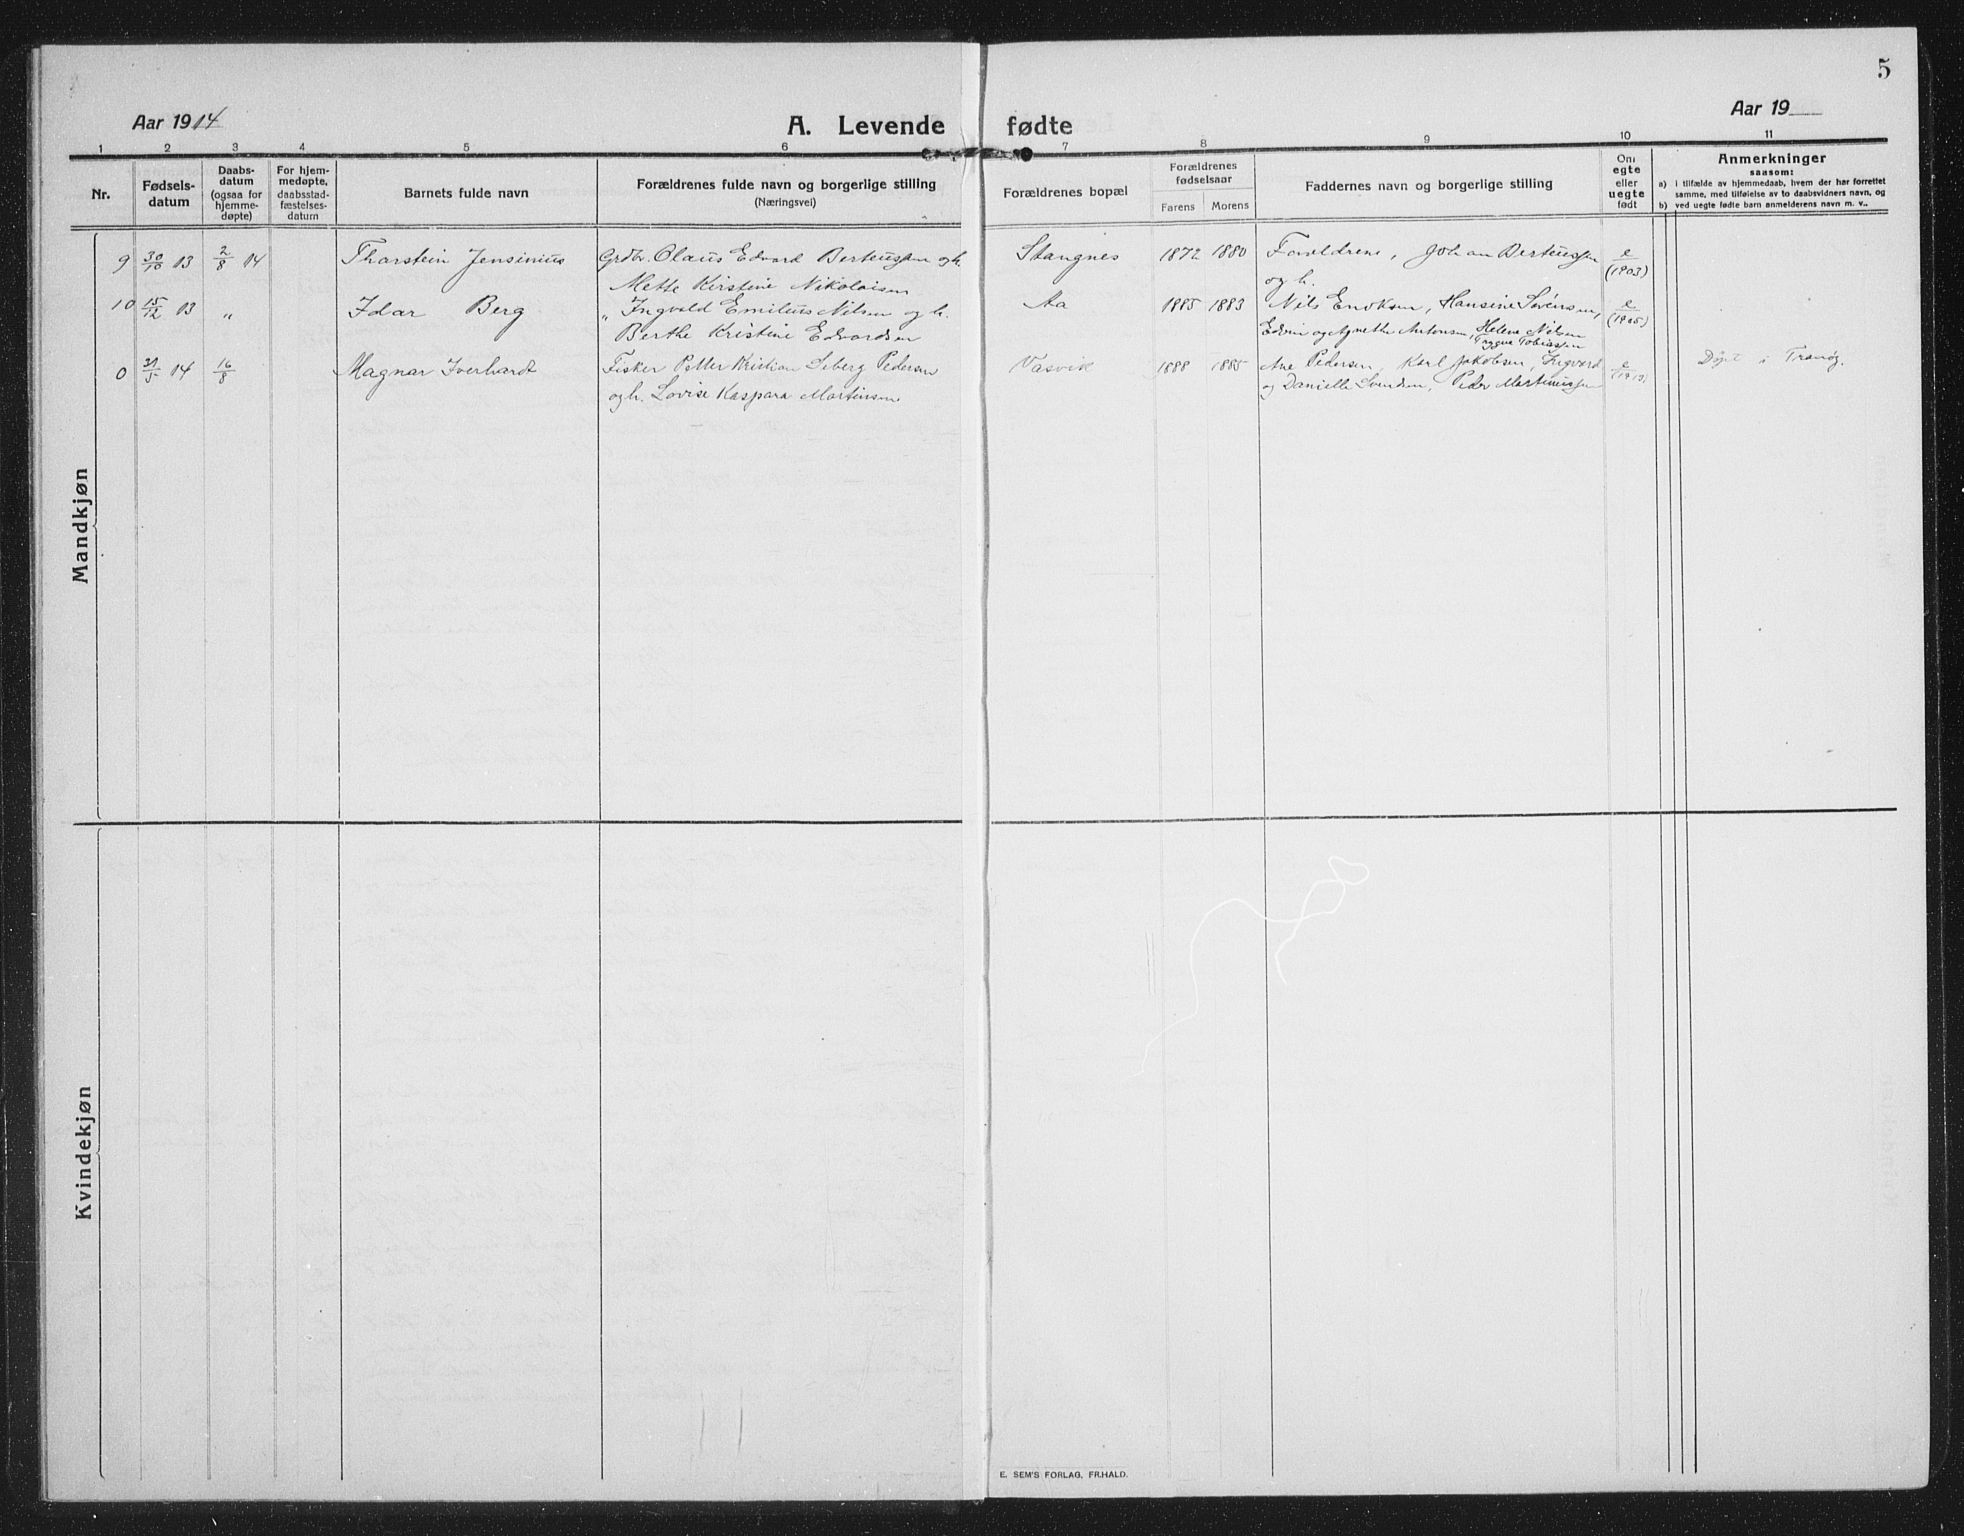 5
Aar 1914
A. Levende fødte
Aar 19
1 2 3 4 5 6 7 8 9 10 11
Nr.
Fødselsdatum
Daabsdatum (ogsaa for hjemmedøpte)
For hjemmedøpte, daabsstadfæstelsesdatum
Barnets fulde navn
Forældrenes fulde navn og borgerlige stilling
(Næringsvei)
Forældrenes bopæl
Forældrenes fødselsaar
Farens Morens
Faddernes navn og borgerlige stilling
Om egte eller uegte født
Anmerkninger
saasom:
a) i tilfælde av hjemmedaab, hvem der har forrettet samme, med tilføielse av to daabsvidners navn, og
b) ved uegte fødte barn anmelderens navn m. v..
Mandkjøn
9 30/10 13 2/8 14 Thorstein Jensinius Grdbr. Olaus Edvard Berteussen og h. Stangnes 1872 1880 Forældrene, Johan Berteussen e/(1903)
Mette Kirstine Nikolaisen og h.
10 15/12 13 " Idar Berg " Ingvald Emilius Nilsen og h. Aa 1885 1883 Nils Enoksen, Hansine Sørensen, e/(1905)
Berthe Kristine Edvardsen Edvin og Agnethe Antonsen, Helene Nilsen
Trygve Tobiassen
0 31/5 14 16/8 Magnar Iverhardt Fisker Petter Kristian Seberg Pedersen Vasvik 1888 1885 Ane Pedersen, Karl Jakobsen, Ingvard e/(1913) Døpt i Tranøy.
og h. Lovise Kaspara Martinsen og Danielle Svendsen, Peder Martinussen
Kvindekjøn
E. SEM'S FORLAG, FR.HALD.